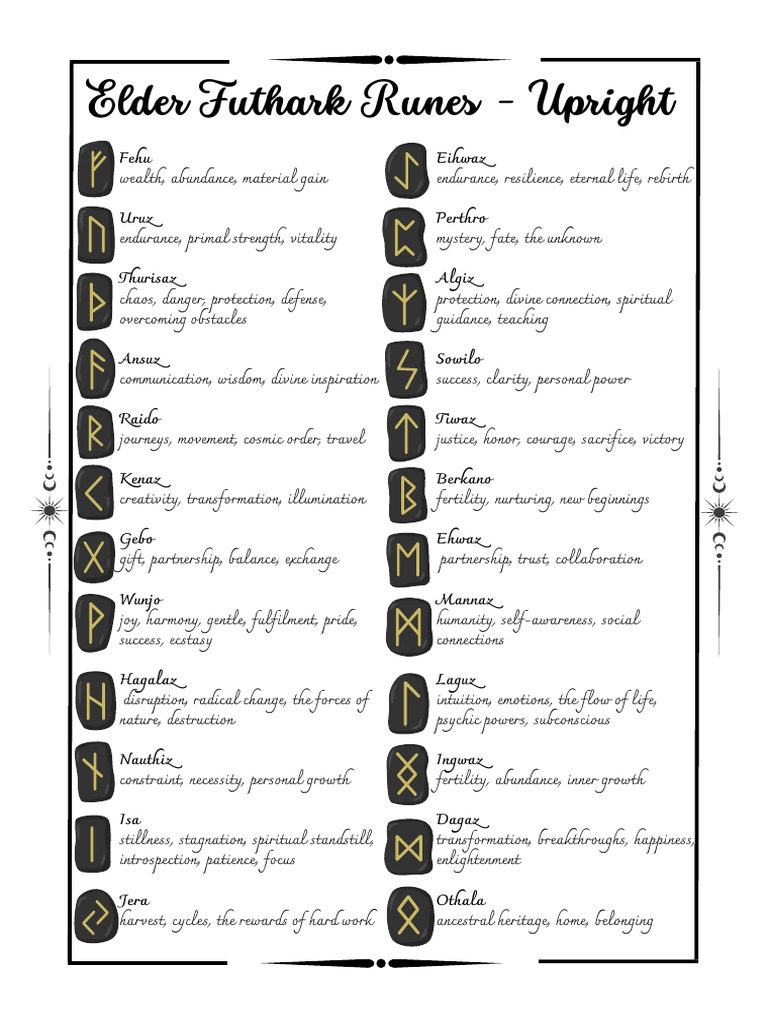 Elder Futhark Runes - Upright
ᚠ
Fehu
wealth, abundance, material gain
ᚢ
Uruz
endurance, primal strength, vitality
ᚦ
Thurisaz
chaos, danger, protection, defense,
overcoming obstacles
ᚨ
Ansuz
communication, wisdom, divine inspiration
ᚱ
Raido
journeys, movement, cosmic order, travel
ᚲ
Kenaz
creativity, transformation, illumination
ᚷ
Gebo
gift, partnership, balance, exchange
ᚹ
Wunjo
joy, harmony, gentle, fulfilment, pride,
success, ecstasy
ᚺ
Hagalaz
disruption, radical change, the forces of
nature, destruction
ᚾ
Nauthiz
constraint, necessity, personal growth
ᛁ
Isa
stillness, stagnation, spiritual standstill,
introspection, patience, focus
ᛃ
Jera
harvest, cycles, the rewards of hard work
ᛇ
Eihwaz
endurance, resilience, eternal life, rebirth
ᛈ
Perthro
mystery, fate, the unknown
ᛉ
Algiz
protection, divine connection, spiritual
guidance, teaching
ᛊ
Sowilo
success, clarity, personal power
ᛏ
Tiwaz
justice, honor, courage, sacrifice, victory
ᛒ
Berkano
fertility, nurturing, new beginnings
ᛖ
Ehwaz
partnership, trust, collaboration
ᛗ
Mannaz
humanity, self-awareness, social
connections
ᛚ
Laguz
intuition, emotions, the flow of life,
psychic powers, subconscious
ᛝ
Ingwaz
fertility, abundance, inner growth
ᛞ
Dagaz
transformation, breakthroughs, happiness,
enlightenment
ᛟ
Othala
ancestral heritage, home, belonging